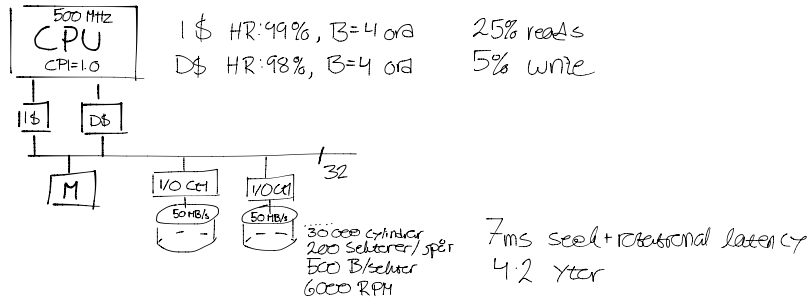 500 MHz
CPU
CPI=1.0
I$ HR:99%, B=4 ord
25% reads
D$ HR:98%, B=4 ord
5% write
I$
D$
32
M
I/O Ctl
I/O Ctl
50 MB/s
50 MB/s
30 000 cylindrar
200 sektorer/spår
500 B/sektor
6000 RPM
7ms seek+rotational latency
4·2 ytor